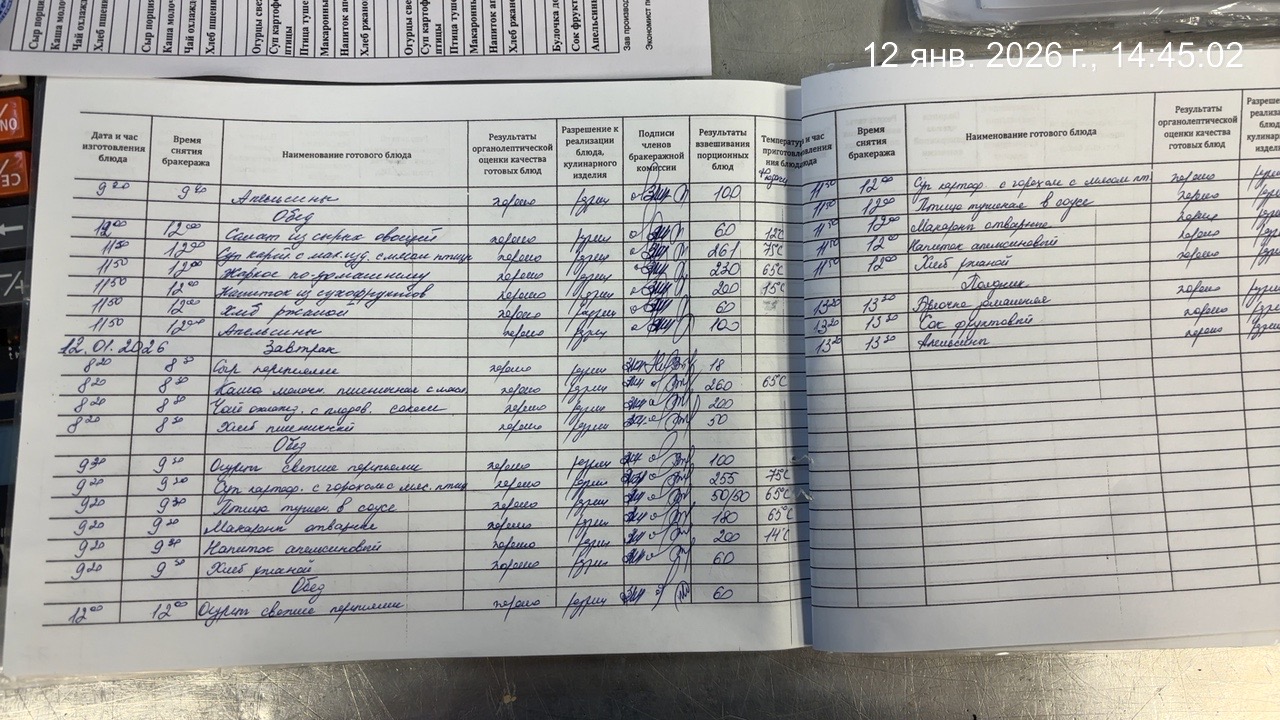 12 янв. 2026 г., 14:45:02
Сыр порци
Каша молоч
Чай охлажд
Хлеб пшен
Сыр порци
Каша молоч
Чай охлажд
Хлеб пшен
Огурцы све
Суп картоф
птицы
Птица туше
Макаронны
Напиток апе
Хлеб ржано
Огурцы све
Суп картоф
птицы
Птица туше
Макаронны
Напиток апе
Хлеб ржано
Булочка до
Сок фрукт
Апельсины
Зав производ
Экономист п
Дата и час изготовления блюда
Время снятия бракеража
Наименование готового блюда
Результаты органолептической оценки качества готовых блюд
Разрешение к реализации блюда, кулинарного изделия
Подписи членов бракеражной комиссии
Результаты взвешивания порционных блюд
9 20 9 30 Апельсины хорошо разреш 100
Обед
12 00 12 00 Салат из сырых овощей хорошо разреш 60 12°С
11 50 12 00 Суп карт. с мак.изд. с мясом птицы хорошо разреш 261 75°С
11 50 12 00 Жаркое по-домашнему хорошо разреш 230 65°С
11 50 12 00 Напиток из сухофруктов хорошо разреш 200 15°С
11 50 12 00 Хлеб ржаной хорошо разреш 60
11 50 12 00 Апельсины хорошо разреш 100
12.01.2026 Завтрак
8 20 8 30 Сыр порциями хорошо разреш 18
8 20 8 30 Каша молочн. пшеничная с масл. хорошо разреш 260 65°С
8 20 8 30 Чай охлажд. с плодов. соком хорошо разреш 200
8 20 8 30 Хлеб пшеничный хорошо разреш 50
Обед
9 20 9 30 Огурцы свежие порциями хорошо разреш 100
9 20 9 30 Суп картоф. с горохом с мяс. птицы хорошо разреш 255 75°С
9 20 9 30 Птица тушен. в соусе хорошо разреш 50/50 65°С
9 20 9 30 Макароны отварные хорошо разреш 180 65°С
9 20 9 30 Напиток апельсиновый хорошо разреш 200 14°С
9 20 9 30 Хлеб ржаной хорошо разреш 60
Обед
12 00 12 00 Огурцы свежие порциями хорошо разреш 60
Время снятия бракеража
Наименование готового блюда
Результаты органолептической оценки качества готовых блюд
11 50 12 00 Суп картоф. с горохом с мясом пт. хорошо
11 50 12 00 Птица тушеная в соусе хорошо
11 50 12 00 Макароны отварные хорошо
11 50 12 00 Напиток апельсиновый хорошо
11 50 12 00 Хлеб ржаной хорошо
Полдник
13 20 13 30 Булочка домашняя хорошо
13 20 13 30 Сок фруктовый хорошо
13 20 13 30 Апельсин хорошо